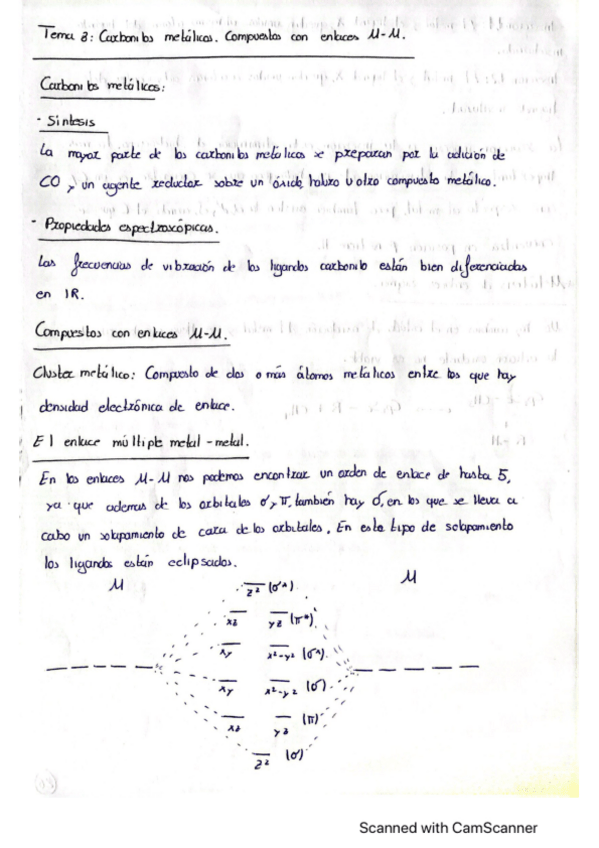 Tema 8: Carbonilos metálicos. Compuestos con enlaces M-M.
Carbonilos metálicos:
· Síntesis
La mayor parte de los carbonilos metálicos se preparan por la adición de
CO y un agente reductor sobre un óxido, haluro u otro compuesto metálico.
· Propiedades espectroscópicas.
Las frecuencias de vibración de los ligandos carbonilo están bien diferenciadas
en IR.
Compuestos con enlaces M-M.
Cluster metálico: Compuesto de dos o más átomos metálicos entre los que hay
densidad electrónica de enlace.
El enlace múltiple metal-metal.
En los enlaces M-M nos podemos encontrar un orden de enlace de hasta 5,
ya que ademas de los orbitales σ y π, también hay δ, en los que se lleva a
cabo un solapamiento de cara de los orbitales. En este tipo de solapamiento
los ligandos están eclipsados.
M M
z² (σ*)
xz yz (π*)
xy x²-y² (δ*)
xy x²-y² (δ)
xz yz (π)
z² (σ)
Scanned with CamScanner